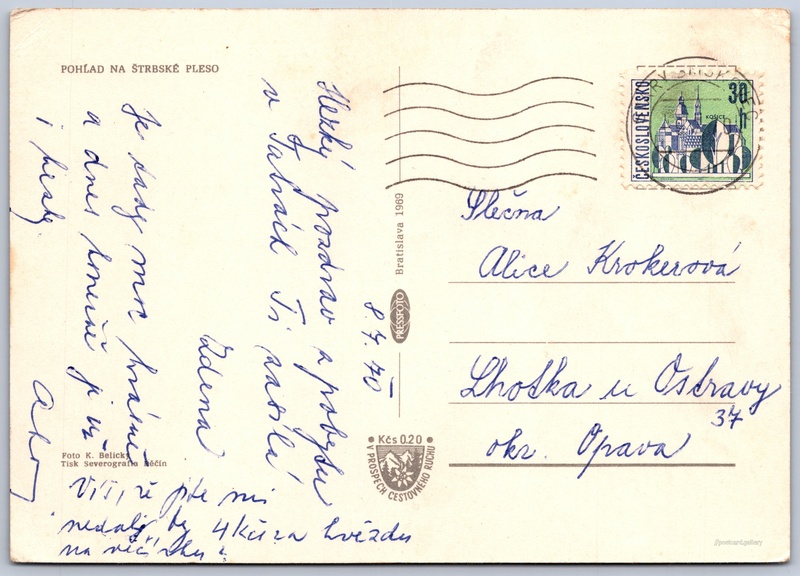 POHĽAD NA ŠTRBSKÉ PLESO
Hezký pozdrav z pobytu
v Tatrách Ti zasílá
Zdena
8. 7. 70
Je tady moc krásně
a dnes konečně je už
i hezky.
Ahoj
Víš, že jste mi
nedali by 4 Kčs za hvězdu
na
Foto K. Belický
Tisk Severografia Děčín
Bratislava 1969
PRESSFOTO
Kčs 0.20
V PROSPECH CESTOVNÉHO RUCHU
ČESKOSLOVENSKO
30 h
KOŠICE
Slečna
Alice Krokerová
Lhotka u Ostravy
37
okr. Opava
@postcard.gallery